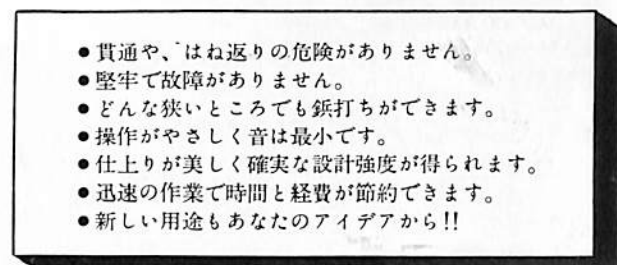 ●貫通や、はね返りの危険がありません。
●堅牢で故障がありません。
●どんな狭いところでも鋲打ちができます。
●操作がやさしく音は最小です。
●仕上りが美しく確実な設計強度が得られます。
●迅速の作業で時間と経費が節約できます。
●新しい用途もあなたのアイデアから!!